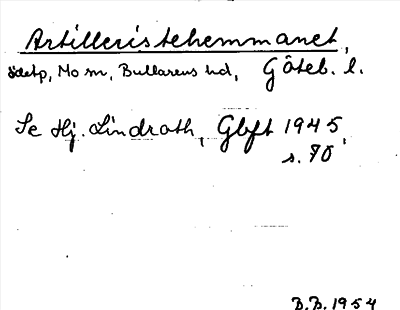 Artilleristehemmanet,
Mo sn, Bullarens hd, Göteb. l.
Se Hj. Lindroth, Gbft 1945,
s. 70
B.B. 1954